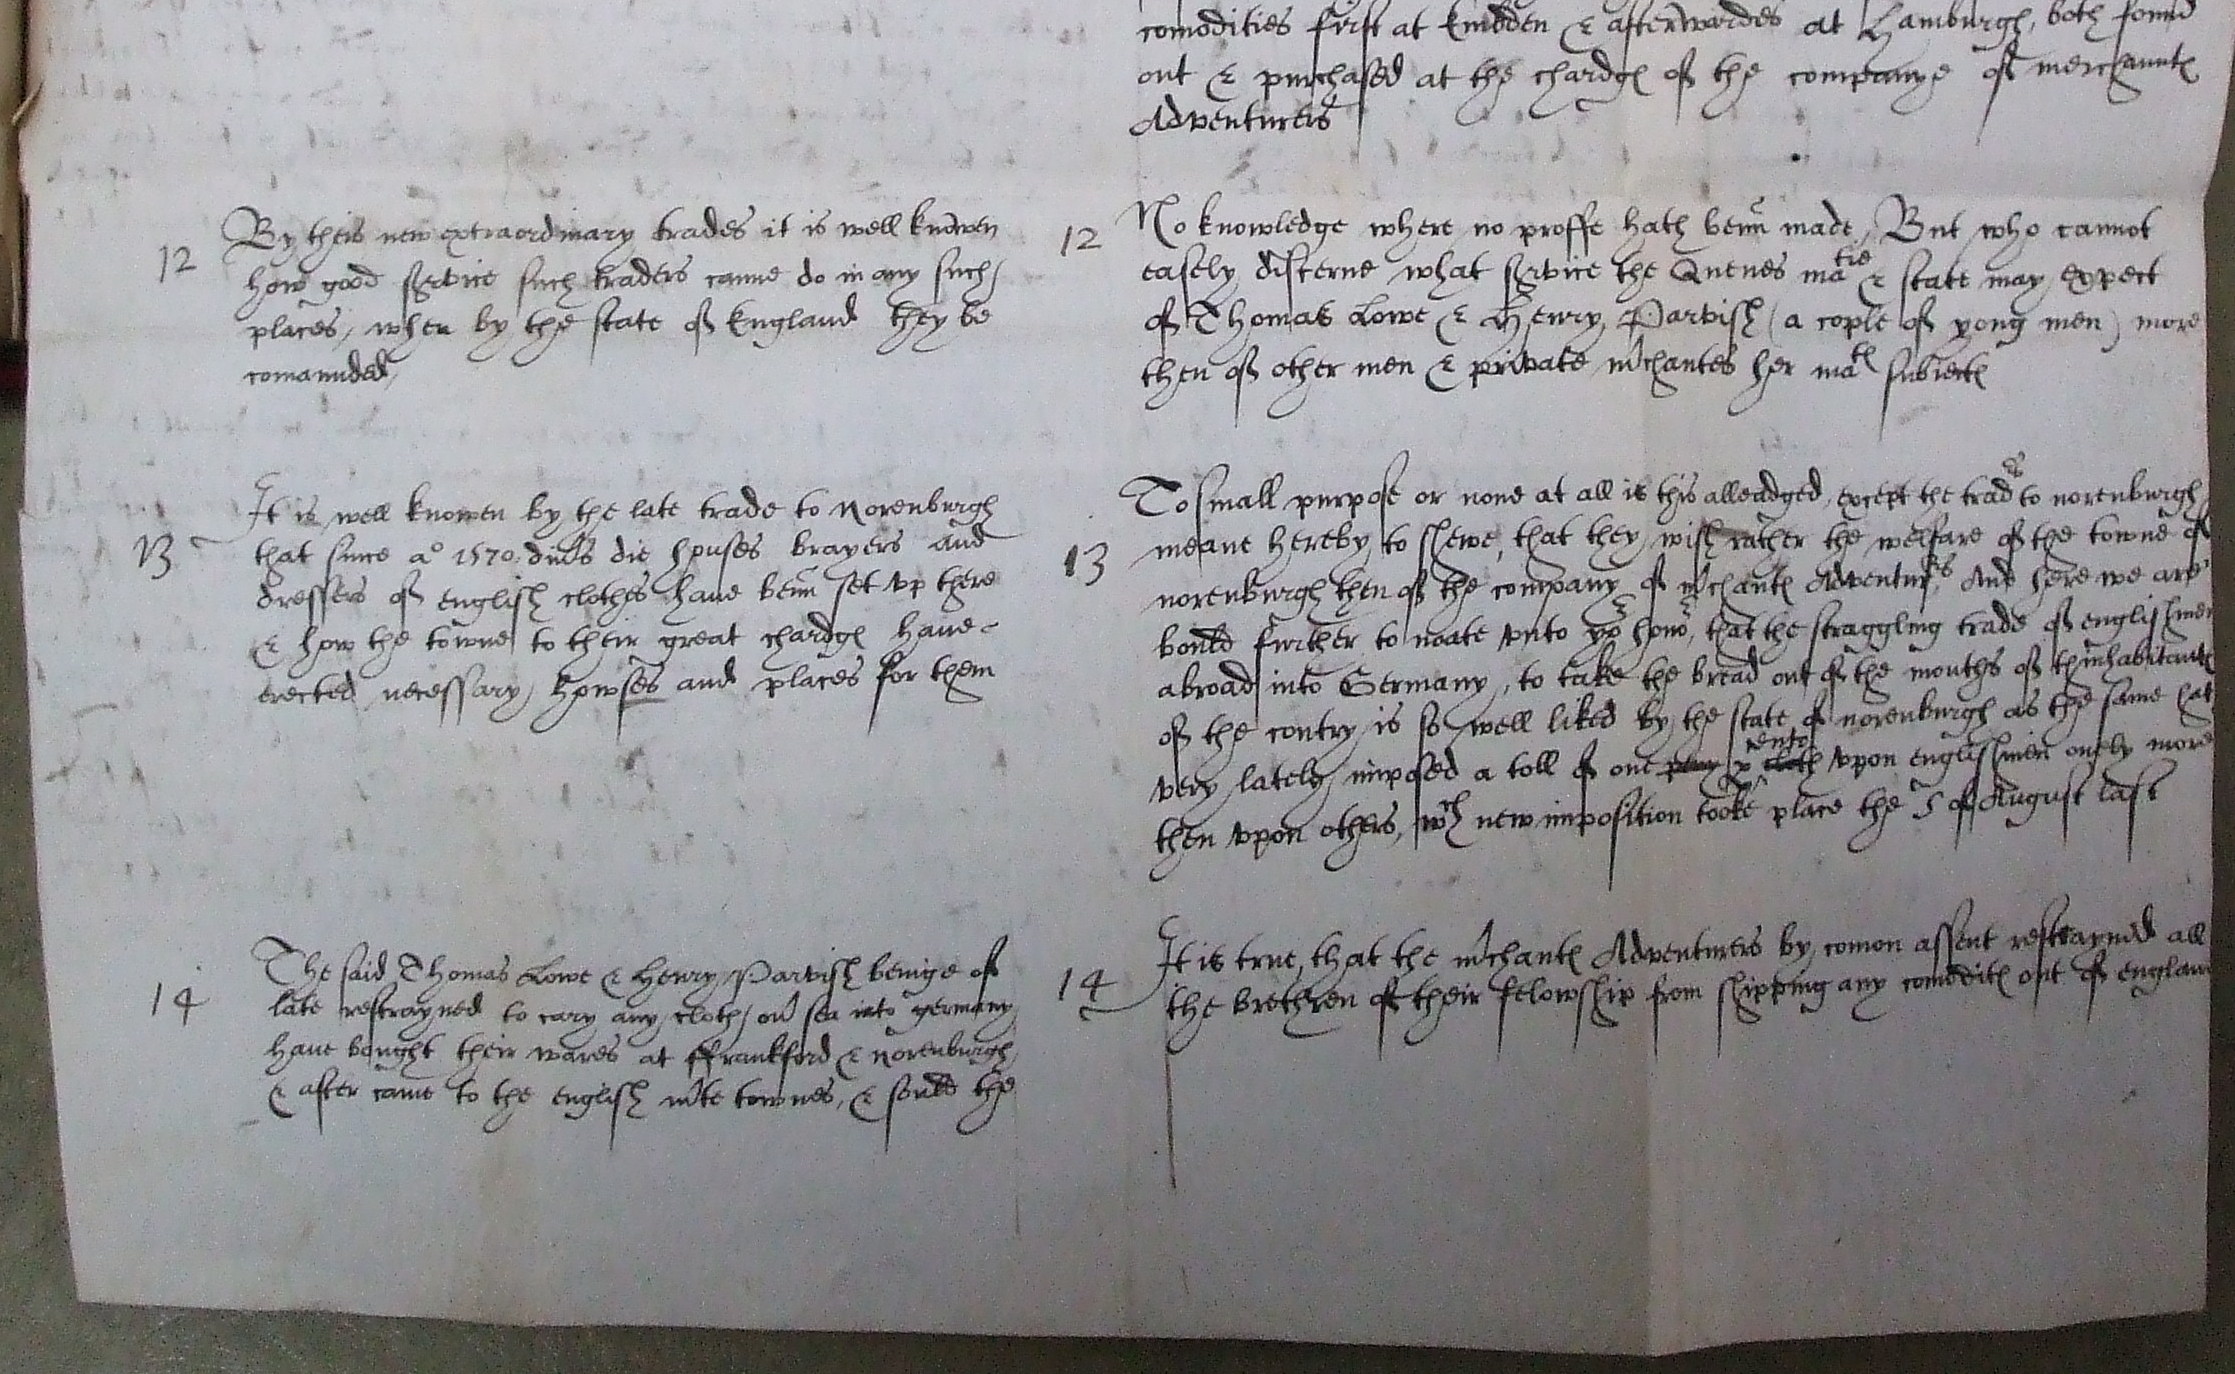 comodities first at Embden & afterwardes at Hamburgh, both found
out & purchased at the chardg of the companye of merchaunt
Adventurers
12 By theis new extraordinary trades it is well knowen
how good service such traders canne do in any such
places, when by the state of England they be
comaunded,
12 No knowledge where no proffe hath benn made, But who cannot
easely discerne what service the Quenes ma tie & state may expect
of Thomas Lowe & Henry Parvish (a cople of yong men) more
then of other men & private m'chantes her mat subiect
13 It is well knowen by the late trade to Norenburgh
that since ao 1570. divs die houses brayers and
dressers of english clothes have benn set vp there
& how the towne to their great chardg have
erected necessary howses and places for them
13 To small purpose or none at all is this alleadged, except the trads to norenburgh
meane hereby to shewe, that they wish rather the welfare of the towne of
norenburgh then of the company of m'chant Adventurs, And here we are
bould further to noate vnto yor honor, that the straggling trade of englishmen
abroad into Germany, to take the bread out of the mouths of thinhabitant
of the contry is so well liked by the state of norenburgh as the same hat
very lately imposed a toll of one p cloth vpon englishmen onely more
then vpon others, wch new imposition tooke place the 5 of August last
14 The said Thomas Lowe & Henry Parvish beinge of
late restrayned to cary any cloth ou' sea into germany
have bought their wares at ffrankford & Norenburgh,
& after came to the english m'te townes, & sould the
14 It is true, that the m'chant Adventurers by comon assent restrayned all
the brethren of their felowship from shipping any comodit out of englan